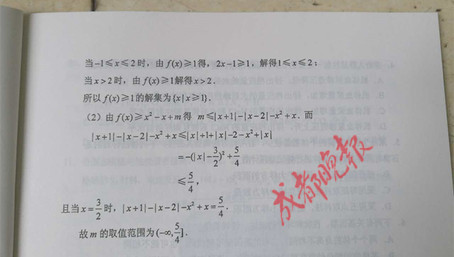 当-1≤x≤2时，由f(x)≥1得，2x-1≥1，解得1≤x≤2；
当x>2时，由f(x)≥1解得x>2.
所以f(x)≥1的解集为{x|x≥1}.
（2）由f(x)≥x²-x+m得 m≤|x+1|-|x-2|-x²+x. 而
|x+1|-|x-2|-x²+x≤|x|+1+|x|-2-x²+|x|
=-(|x|-3/2)²+5/4
≤5/4，
且当x=3/2时，|x+1|-|x-2|-x²+x=5/4.
故m的取值范围为(-∞,5/4].
成都晚报